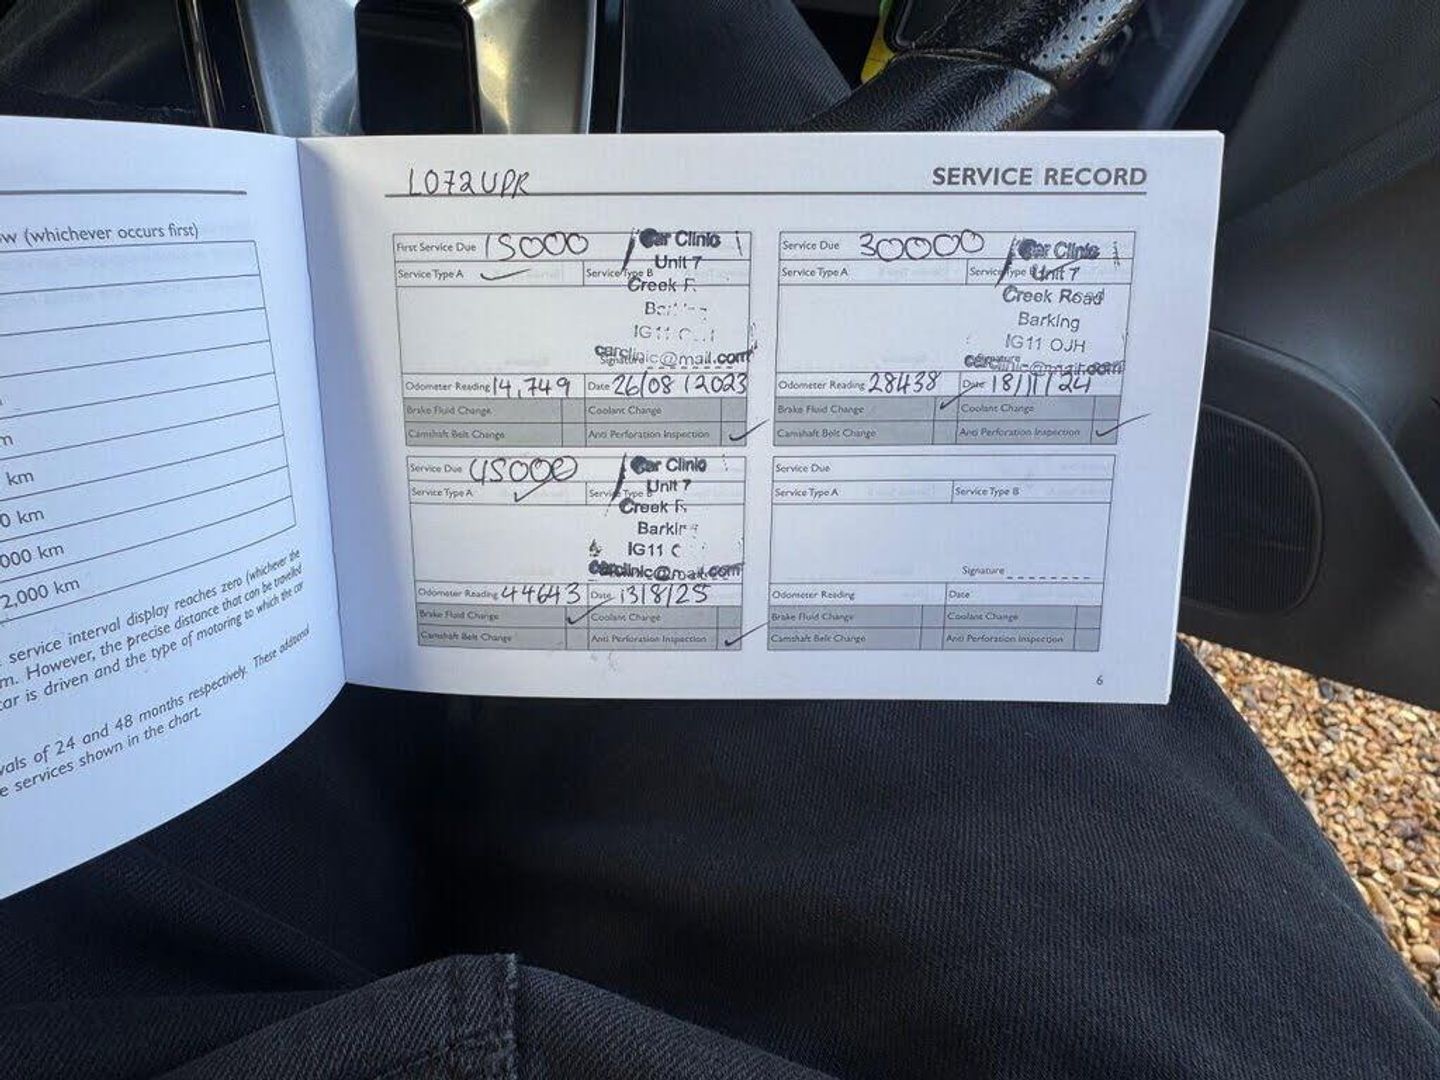 w (whichever occurs first)
m
km
0 km
000 km
2,000 km
service interval display reaches zero (whichever the
m. However, the precise distance that can be travelled
car is driven and the type of motoring to which the car
vals of 24 and 48 months respectively. These additional
e services shown in the chart.
LO72UPR
SERVICE RECORD
First Service Due 15000
Service Type A
Service Type B
Car Clinic
Unit 7
Creek
IG11
Signature
carclinic@mail.com
Odometer Reading 14,749
Date 26/08/2023
Brake Fluid Change
Coolant Change
Camshaft Belt Change
Anti Perforation Inspection
Service Due 30000
Service Type A
Service Type
Car Clinic
Unit 7
Creek Road
Barking
IG11 OJH
Signature
carclinic@mail.com
Odometer Reading 28438
Date 18/11/24
Brake Fluid Change
Coolant Change
Camshaft Belt Change
Anti Perforation Inspection
Service Due 45000
Service Type A
Service Type B
Car Clinic
Unit 7
Creek
Barkin
IG11
carclinic@mail.com
Odometer Reading 44643
Date 13/8/25
Brake Fluid Change
Coolant Change
Camshaft Belt Change
Anti Perforation Inspection
Service Due
Service Type A
Service Type B
Signature
Odometer Reading
Date
Brake Fluid Change
Coolant Change
Camshaft Belt Change
Anti Perforation Inspection
6